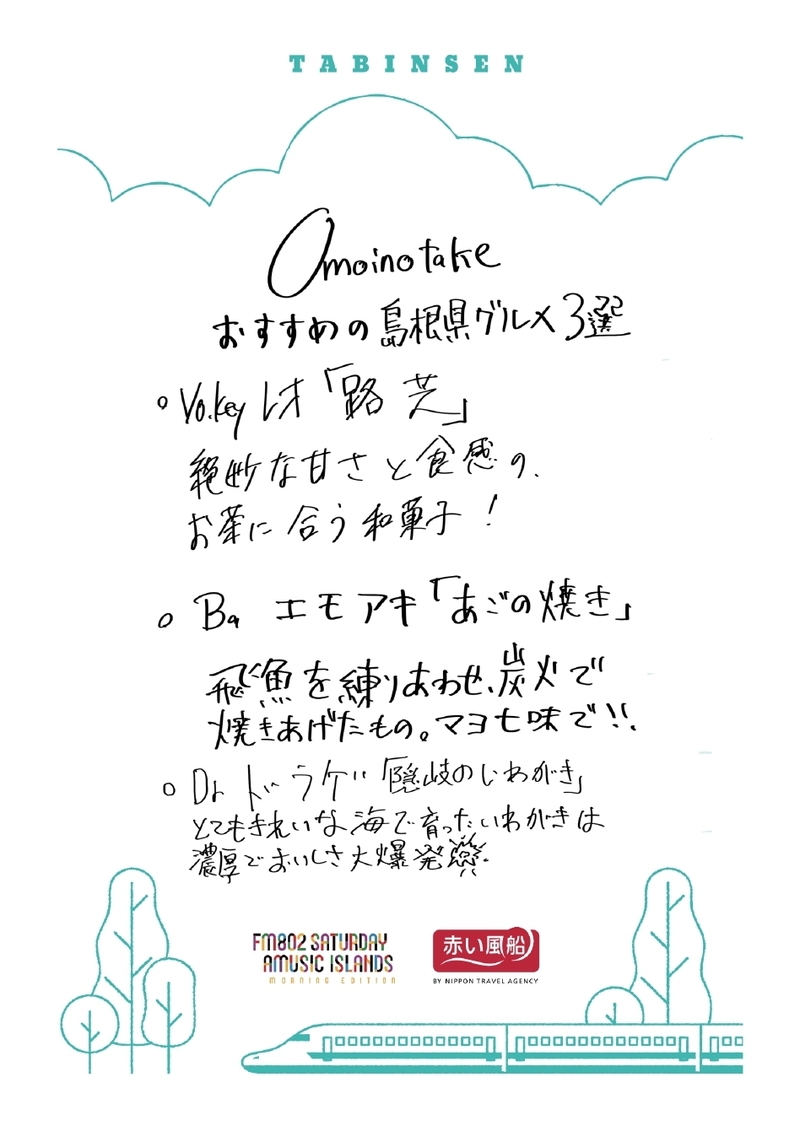 TABINSEN
Omoinotake
おすすめの島根県グルメ3選
○Vo.Key レオ「路芝」
絶妙な甘さと食感の、
お茶に合う和菓子!
○Ba エモアキ「あごの焼き」
飛魚を練りあわせ、炭火で
焼きあげたもの。マヨ七味で!!
○Dr ドラゲ「隠岐のいわがき」
とてもきれいな海で育ったいわがきは
濃厚でおいしさ大爆発
FM802 SATURDAY
AMUSIC ISLANDS
MORNING EDITION
赤い風船
BY NIPPON TRAVEL AGENCY